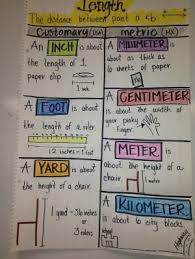 Length
The distance between point a & b
Customary (US)
An INCH is about
the length of 1
paper clip
1 inch
A FOOT is about
the length of a ruler.
12 inches = 1 foot
A YARD is about
the height of a
chair.
1 yard = 36 inches
or
3 rulers
metric (MX)
A MILLIMETER is
about as thick
as 10 sheets of
paper.
A CENTIMETER is
about the width of
your pinky
finger.
A METER is
about the height of a
chair.
1 meter
A KILOMETER is
about 6 city blocks.
school